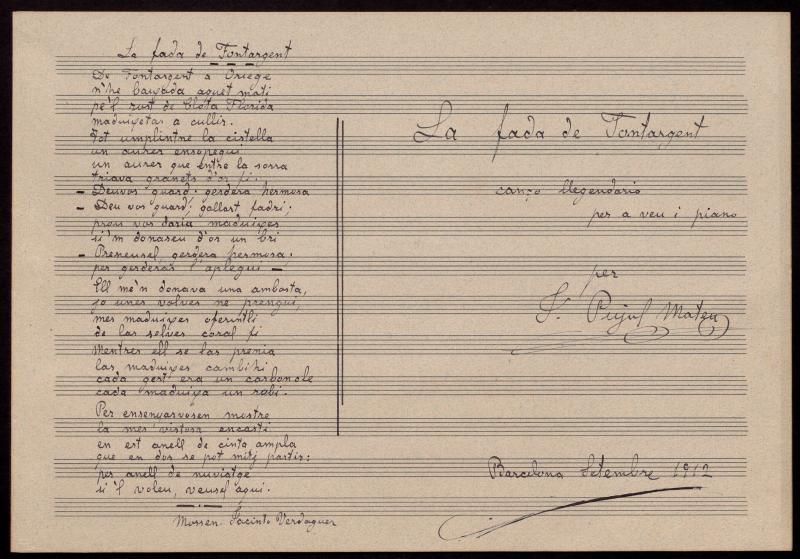 La fada de Fontargent
De Fontargent a Oriege
n'he baixada aquet mati
pe'l rost de Clota Florida
maduixetas a cullir.
Tot umplintne la cistella
un aurer ensopegui
un aurer que entre la sorra
triava granets d'or fi.
– Deuvos guard, gerdera hermosa
– Deu vos guard, gallart fadri;
prou vos daria maduixes
si'm donaseu d'or un bri
– Preneusel, gerdera hermosa.
per gerderas l'aplegui –
Ell me'n donava una ambosta,
jo unes volves ne prengui,
mes maduixes oferintli
de las selves coral fi
Mentres ell se las prenia
las maduixes cambihi
cada gert era un carboncle
cada maduixa un robi.
Per ensenyarvosen mostre
la mes vistosa encasti
en est anell de cinta ampla
que en dos se pot mitj partir:
per anell de nuviatge
si'l voleu, veusel aqui.
Mossen Jacinto Verdaguer
La fada de Fontargent
canço llegendaria
per a veu i piano
per
F. Pujol Mateu
Barcelona Setembre 1912